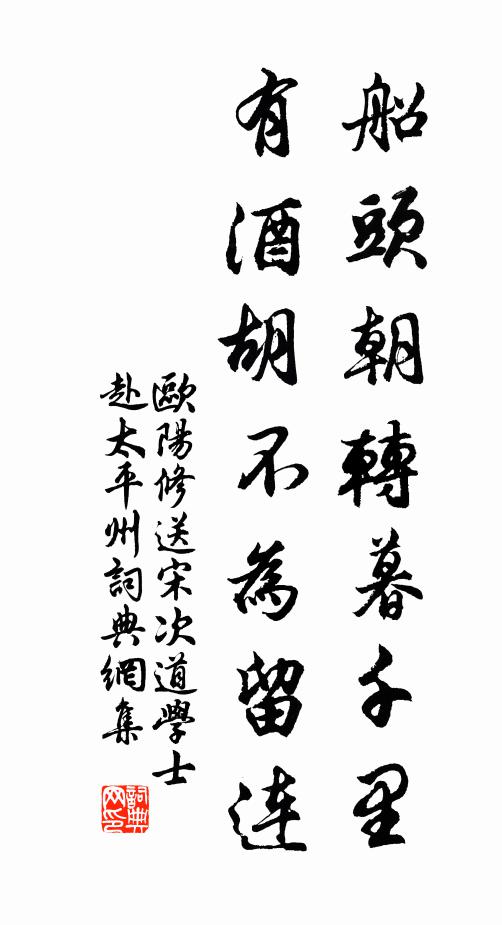 船頭朝轉暮千里
有酒胡不為留連
歐陽修送宋次道學士
赴太平州詞典網集
詞典
网印